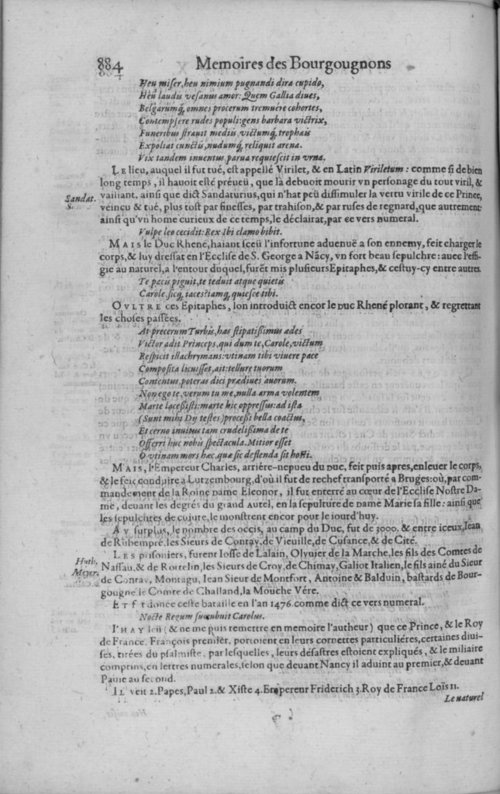 884 Memoires des Bourgougnons
Heu miser, heu nimium pugnandi dira cupido,
Heu laudis vesanus amor: Quem Gallia diues,
Belgarumq́, omnes procerum tremuêre cohortes,
Contempsere rudes populi: gens barbara victrix,
Funeribus strauit mediis, victumq́, trophais
Expoliat cunctis, nudumq́, reliquit arena.
Vix tandem inuentus parua requiescit in vrna.
LE lieu, auquel il fut tué, est appellé Virilet, & en Latin Viriletum: comme si de bien
long temps, il hauoit esté préueu, que là debuoit mourir vn personage du tout viril, &
Sandat. vaillant, ainsi que dict Sandaturius, qui n'hat peu dissimuler la vertu virile de ce Prince,
S. veincu & tué, plus tost par finesses, par trahison, & par ruses de regnard, que autrement:
ainsi qu'vn home curieux de ce temps, le déclairat, par ce vers numeral.
Vulpe leo cecidit: Rex ibi clamo bibit.
MAIS le Duc Rhené, haiant sceu l'infortune aduenuë a son ennemy, feit charger le
corps, & luy dressat en l'Ecclise de S. George a Nãcy, vn fort beau sepulchre: auec l'effigie
au naturel, a l'entour duquel, furẽt mis plusieurs Epitaphes, & cestuy-cy entre autres.
Te pacis piguit, te teduit atque quietis
Carole, sicq́, iaces? iamq́, quiesce tibi.
OVLTRE ces Epitaphes, lon introduict encor le Duc Rhené plorant, & regrettant
les choses passées.
At precerum Turbis, has stipatissimus ades
Victor adit Princeps, qui dum te, Carole, victum
Respicit illachrymans: vtinam tibi viuere pace
Composita licuisset, ait: tellure tuorum
Contentus, poteras dici prædiues auorum.
Non ego te, verum tu me, nulla arma volentem
Marte lacessisti: marte hic oppressus: ad ista
(Sunt mihi Dij testes) processi bella coactus,
Et cerno inuitus tam crudelissima de te
Offerri huc nobis spectacula. Mitior esset
O vtinam mors hæc, quæ sic deflenda sit hosti.
MAIS, l'Empereur Charles, arriére-nepueu du Duc, feit puis apres, enleuer le corps,
& le feit conduire a Lutzembourg, d'où il fut de rechef transporté a Bruges: où, par commandement
de la Roine name Eleonor, il fut enterré au cœur de l'Ecclise Nostre Dame,
deuant les degrés du grand Autel, en la sepulture de Damé Marie sa fille: ainsi que
les sepulchres de cuiure, le monstrent encor pour le iourd'huy.
AV surplus, le nombre des occis, au camp du Duc, fut de 3000. & entre iceux, Jean
de Rubempré, les Sieurs de Contay, de Vieuille, de Cusance, & de Cité.
LES prisoniers, furent Iosse de Lalain, Olyuier de la Marche, les fils des Comtes de
Huth. Nassau, & de Rottelin, les Sieurs de Croy, de Chimay, Galiot Italien, le fils ainé du Sieur
Meyer. de Contay, Montagu, Iean Sieur de Montfort, Antoine & Balduin, bastards de Bourgougne
le Comte de Challand, la Mouche Vére.
ET fut donnée ceste bataille en l'an 1476. comme dict ce vers numeral.
Nocte Regum succubuit Carolus.
I'HAY leu (& ne me puis remettre en memoire l'autheur) que ce Prince, & le Roy
de France. François premiér, portoient en leurs cornettes particuliéres, certaines diuises,
tirées du psalmiste, par lesquelles, leurs désastres estoient expliqués, & le miliaire
comprins, en lettres numerales, selon que deuant Nancy il aduint au premier, & deuant
Pauie au second.
IL veit 2. Papes, Paul 2. & Xiste 4. Empereur Friderich 3. Roy de France Loïs 11.
Le naturel